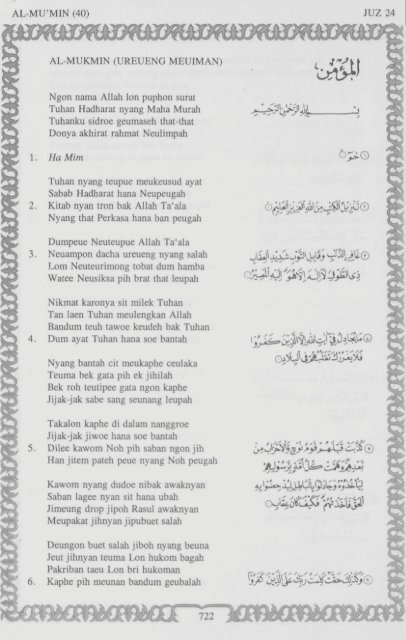 AL-MU'MIN (40) JUZ 24
AL-MUKMIN (UREUENG MEUIMAN)
المؤمن
Ngon nama Allah lon puphon surat
Tuhan Hadharat nyang Maha Murah
Tuhanku sidroe geumaseh that-that
Donya akhirat rahmat Neulimpah
بِسْمِ اللَّهِ الرَّحْمٰنِ الرَّحِيمِ
1. Ha Mim
١ حم
Tuhan nyang teupue meukeusud ayat
Sabab Hadharat hana Neupeugah
2. Kitab nyan tron bak Allah Ta'ala
Nyang that Perkasa hana ban peugah
٢ تَنْزِيلُ الْكِتٰبِ مِنَ اللَّهِ الْعَزِيزِ الْعَلِيمِ
Dumpeue Neuteupue Allah Ta'ala
3. Neuampon dacha ureueng nyang salah
Lom Neuteurimong tobat dum hamba
Watee Neusiksa pih brat that leupah
٣ غَافِرِ الذَّنْبِ وَقَابِلِ التَّوْبِ شَدِيدِ الْعِقَابِ
ذِى الطَّوْلِ لَآ إِلٰهَ إِلَّا هُوَ إِلَيْهِ الْمَصِيرُ
Nikmat karonya sit milek Tuhan
Tan laen Tuhan meulengkan Allah
Bandum teuh tawoe keudeh bak Tuhan
4. Dum ayat Tuhan hana soe bantah
٤ مَا يُجَادِلُ فِىٓ اٰيٰتِ اللَّهِ إِلَّا الَّذِينَ كَفَرُوا
فَلَا يَغْرُرْكَ تَقَلُّبُهُمْ فِى الْبِلَادِ
Nyang bantah cit meukaphe ceulaka
Teuma bek gata pih ek jihilah
Bek roh teutipee gata ngon kaphe
Jijak-jak sabe sang seunang leupah
Takalon kaphe di dalam nanggroe
Jijak-jak jiwoe hana soe bantah
5. Dilee kawom Noh pih saban ngon jih
Han jitem pateh peue nyang Noh peugah
٥ كَذَّبَتْ قَبْلَهُمْ قَوْمُ نُوحٍ وَالْأَحْزَابُ مِنْ
بَعْدِهِمْ وَهَمَّتْ كُلُّ أُمَّةٍ بِرَسُولِهِمْ
لِيَأْخُذُوهُ وَجَادَلُوا بِالْبَاطِلِ لِيُدْحِضُوا بِهِ
الْحَقَّ فَأَخَذْتُهُمْ فَكَيْفَ كَانَ عِقَابِ
Kawom nyang dudoe nibak awaknyan
Saban lagee nyan sit hana ubah
Jimeung drop jipoh Rasul awaknyan
Meupakat jihnyan jipubuet salah
Deungon buet salah jiboh nyang beuna
Jeut jihnyan teuma Lon hukom bagah
Pakriban taeu Lon bri hukoman
6. Kaphe pih meunan bandum geubalah
٦ وَكَذٰلِكَ حَقَّتْ كَلِمَتُ رَبِّكَ عَلَى الَّذِينَ كَفَرُوا
722